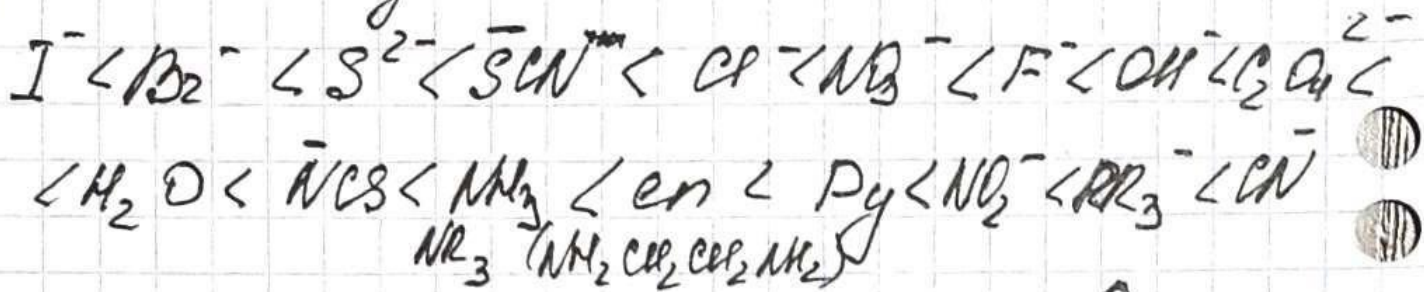 I⁻ < Br⁻ < S²⁻ < S̄CN < Cl⁻ < NO₃⁻ < F⁻ < OH⁻ < C₂O₄²⁻ <
< H₂O < N̄CS < NH₃ < en < Py < NO₂⁻ < PR₃⁻ < CN⁻
NR₃ (NH₂CH₂CH₂NH₂)